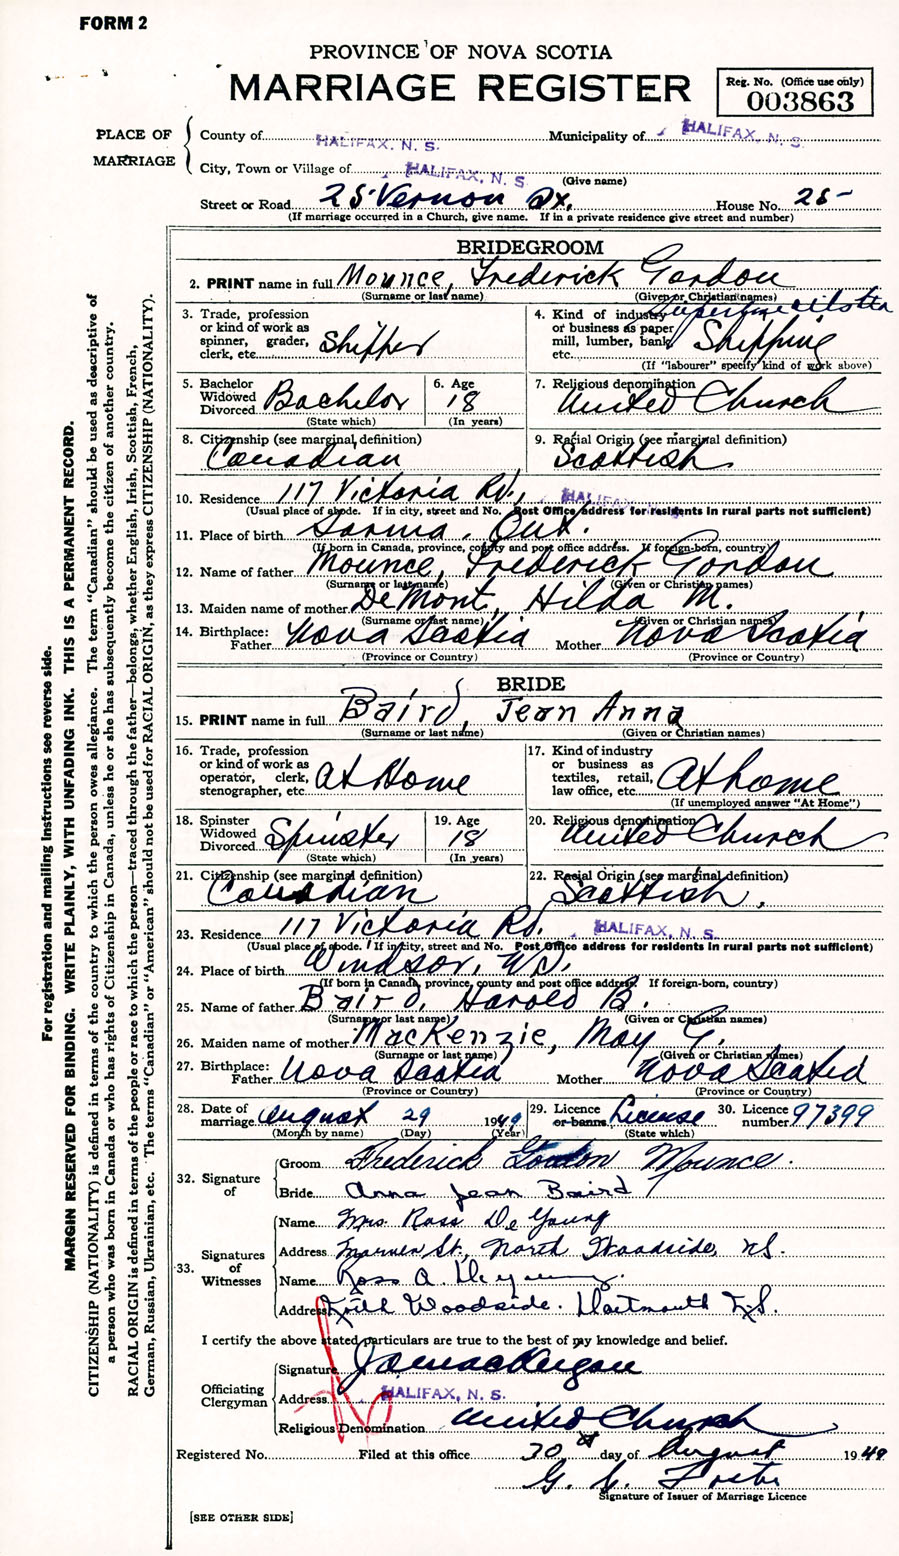 FORM 2
PROVINCE OF NOVA SCOTIA
MARRIAGE REGISTER
Reg. No. (Office use only)
003863
PLACE OF MARRIAGE
County of HALIFAX, N. S. Municipality of HALIFAX, N. S.
City, Town or Village of HALIFAX, N. S.
(Give name)
Street or Road 25 Vernon St. House No. 25-
(If marriage occurred in a Church, give name. If in a private residence give street and number)
BRIDEGROOM
2. PRINT name in full Mounce, Frederick Gordon
(Surname or last name) (Given or Christian names)
3. Trade, profession or kind of work as spinner, grader, clerk, etc. Shipper
4. Kind of industry or business as paper mill, lumber, bank, etc. Shipping
(If "labourer" specify kind of work above)
5. Bachelor Widowed Divorced Bachelor
(State which)
6. Age 18
(In years)
7. Religious denomination United Church
8. Citizenship (see marginal definition) Canadian
9. Racial Origin (see marginal definition) Scottish
10. Residence 117 Victoria Rd., HALIFAX, N. S.
(Usual place of abode. If in city, street and No. Post Office address for residents in rural parts not sufficient)
11. Place of birth Sarnia, Ont.
(If born in Canada, province, county and post office address. If foreign-born, country)
12. Name of father Mounce, Frederick Gordon
(Surname or last name) (Given or Christian names)
13. Maiden name of mother DeMont, Hilda M.
(Surname or last name) (Given or Christian names)
14. Birthplace: Father Nova Scotia Mother Nova Scotia
(Province or Country) (Province or Country)
BRIDE
15. PRINT name in full Baird, Jean Anna
(Surname or last name) (Given or Christian names)
16. Trade, profession or kind of work as operator, clerk, stenographer, etc. At Home
17. Kind of industry or business as textiles, retail, law office, etc. At home
(If unemployed answer "At Home")
18. Spinster Widowed Divorced Spinster
(State which)
19. Age 18
(In years)
20. Religious denomination United Church
21. Citizenship (see marginal definition) Canadian
22. Racial Origin (see marginal definition) Scottish.
23. Residence 117 Victoria Rd. HALIFAX, N. S.
(Usual place of abode. If in city, street and No. Post Office address for residents in rural parts not sufficient)
24. Place of birth Windsor, N.S.
(If born in Canada, province, county and post office address. If foreign-born, country)
25. Name of father Baird, Harold B.
(Surname or last name) (Given or Christian names)
26. Maiden name of mother MacKenzie, May G.
(Surname or last name) (Given or Christian names)
27. Birthplace: Father Nova Scotia Mother Nova Scotia
(Province or Country) (Province or Country)
28. Date of marriage August 29 1949
(Month by name) (Day) (Year)
29. Licence or banns License
(State which)
30. Licence number 97399
32. Signature of
Groom Frederick Gordon Mounce.
Bride Anna Jean Baird
33. Signatures of Witnesses
Name Mrs. Ross De Young
Address St., North Woodside, N.S.
Name Ross A. DeYoung.
Address Woodside. Dartmouth N.S.
I certify the above stated particulars are true to the best of my knowledge and belief.
Officiating Clergyman
Signature
Address HALIFAX, N. S.
Religious Denomination United Church
Registered No. Filed at this office 30 day of August 1949
G. Foster
Signature of Issuer of Marriage Licence
[SEE OTHER SIDE]
For registration and mailing instructions see reverse side.
MARGIN RESERVED FOR BINDING. WRITE PLAINLY, WITH UNFADING INK. THIS IS A PERMANENT RECORD.
CITIZENSHIP (NATIONALITY) is defined in terms of the country to which the person owes allegiance. The term "Canadian" should be used as descriptive of
a person who was born in Canada or who has rights of Citizenship in Canada, unless he or she has subsequently become the citizen of another country.
RACIAL ORIGIN is defined in terms of the people or race to which the person—traced through the father—belongs, whether English, Irish, Scottish, French,
German, Russian, Ukrainian, etc. The terms "Canadian" or "American" should not be used for RACIAL ORIGIN, as they express CITIZENSHIP (NATIONALITY).